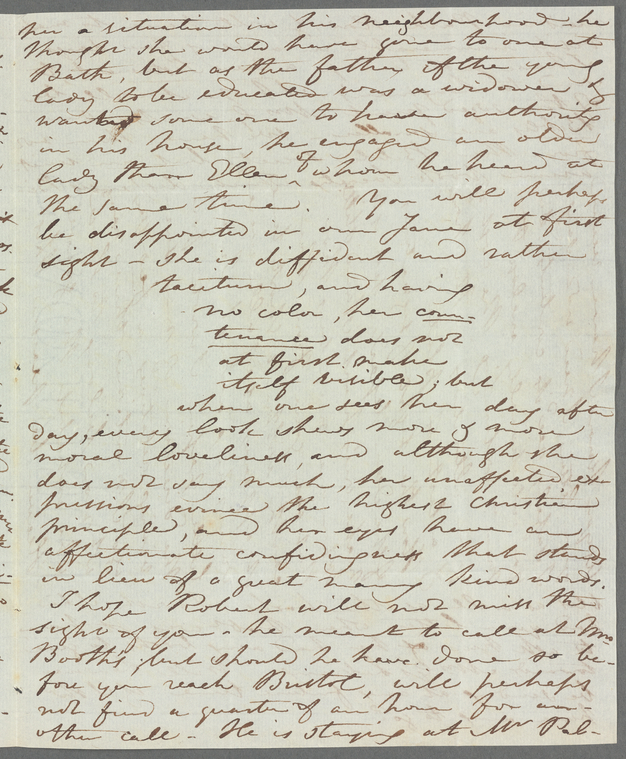 her a situation in his neighbourhood - he
thought she would have gone to one at
Bath, but as the father of the young
lady to be educated was a widower &
wanted some one to have authority
in his house, he engaged an older
lady than Ellen of whom he heard at
the same time. You will perhaps
be disappointed in our Jane at first
sight - she is diffident and rather
taciturn, and having
no color, her coun-
tenance does not
at first make
itself visible; but
when one sees her day after
day, every look shews more & more
moral loveliness, and although she
does not say much, her unaffected ex-
pressions evince the highest Christian
principle, and her eyes have an
affectionate confidingness that stands
in lieu of a great many kind words.
I hope Robert will not miss the
sight of you - he meant to call at Mrs
Booth's; but should he have done so be-
fore you reach Bristol, will perhaps
not find a quarter of an hour for an-
other call - He is staying at Mr Pal-